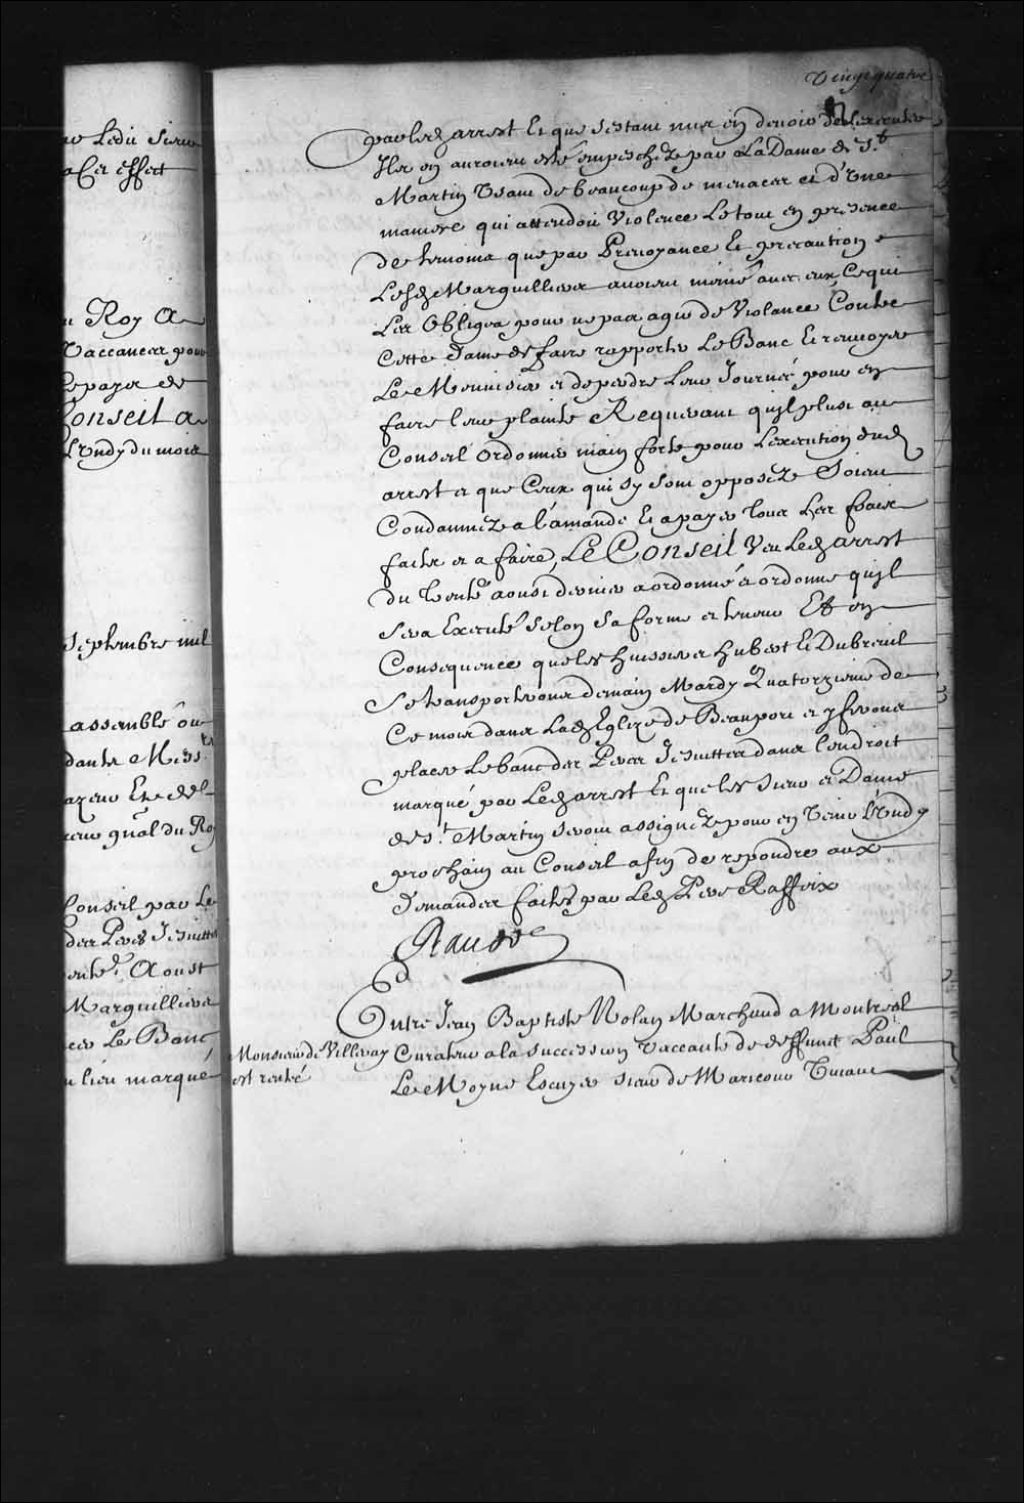 Vingt quatre
par led arrest Et que sestant mis en devoir de lexecuter
Ils en auroient esté empeschez par La Dame de St
Martin Usant de beaucoup de menaces et d'Une
maniere qui attendoit Violence Le tout en presence
de temoins que par Prevoyance Et precaution
Lesd Marguilliers avoient mené avec eux, Ce qui
Les Obligea pour ne pas agir de Violance Contre
Cette Dame de faire rapporter Le Banc Et renvoyer
Le Menuisier et de perdre Leur Journée pour en
faire leur plainte Requerant quil plust au
Conseil Ordonner main forte pour Lexecution dud
arrest et que Ceux qui sy sont opposez Soient
Condamnez a l'amande Et a payer tous Les frais
faits et a faire, Le Conseil Veu Led arrest
du trente aoust dernier a ordonné et ordonne quil
Sera Executé selon Sa forme et teneur Et en
Consequence que les huissiers hubert Et Dubreuil
Se transporteront demain Mardy Quatorzieme de
Ce mois dans Lad Eglize de Beauport et y feront
placer Le banc des Peres Jesuittes dans lendroit
marqué par Led arrest Et que les Sieur et Dame
de St Martin seront assignez pour en Venir Lundy
prochain au Conseil afin de repondre aux
Demandes faites par Led Pere Raffeix
Raudot
Entre Jean Baptiste Nolan Marchand a Montreal
Monsieur de Villeray
est rentré
Curateur a la succession Vaccante de deffunct Paul
Le Moyne Escuyer sieur de Maricour
Ledit Sieur
Cet effect
Roy A
Vaccances pour
payer de
Conseil a
Lundy du mois
Septembre mil
assemblé ou
gnal du Roy
Conseil par Le
des Peres Jesuittes
Aoust
Marguilliers
Le Banc
lieu marqué